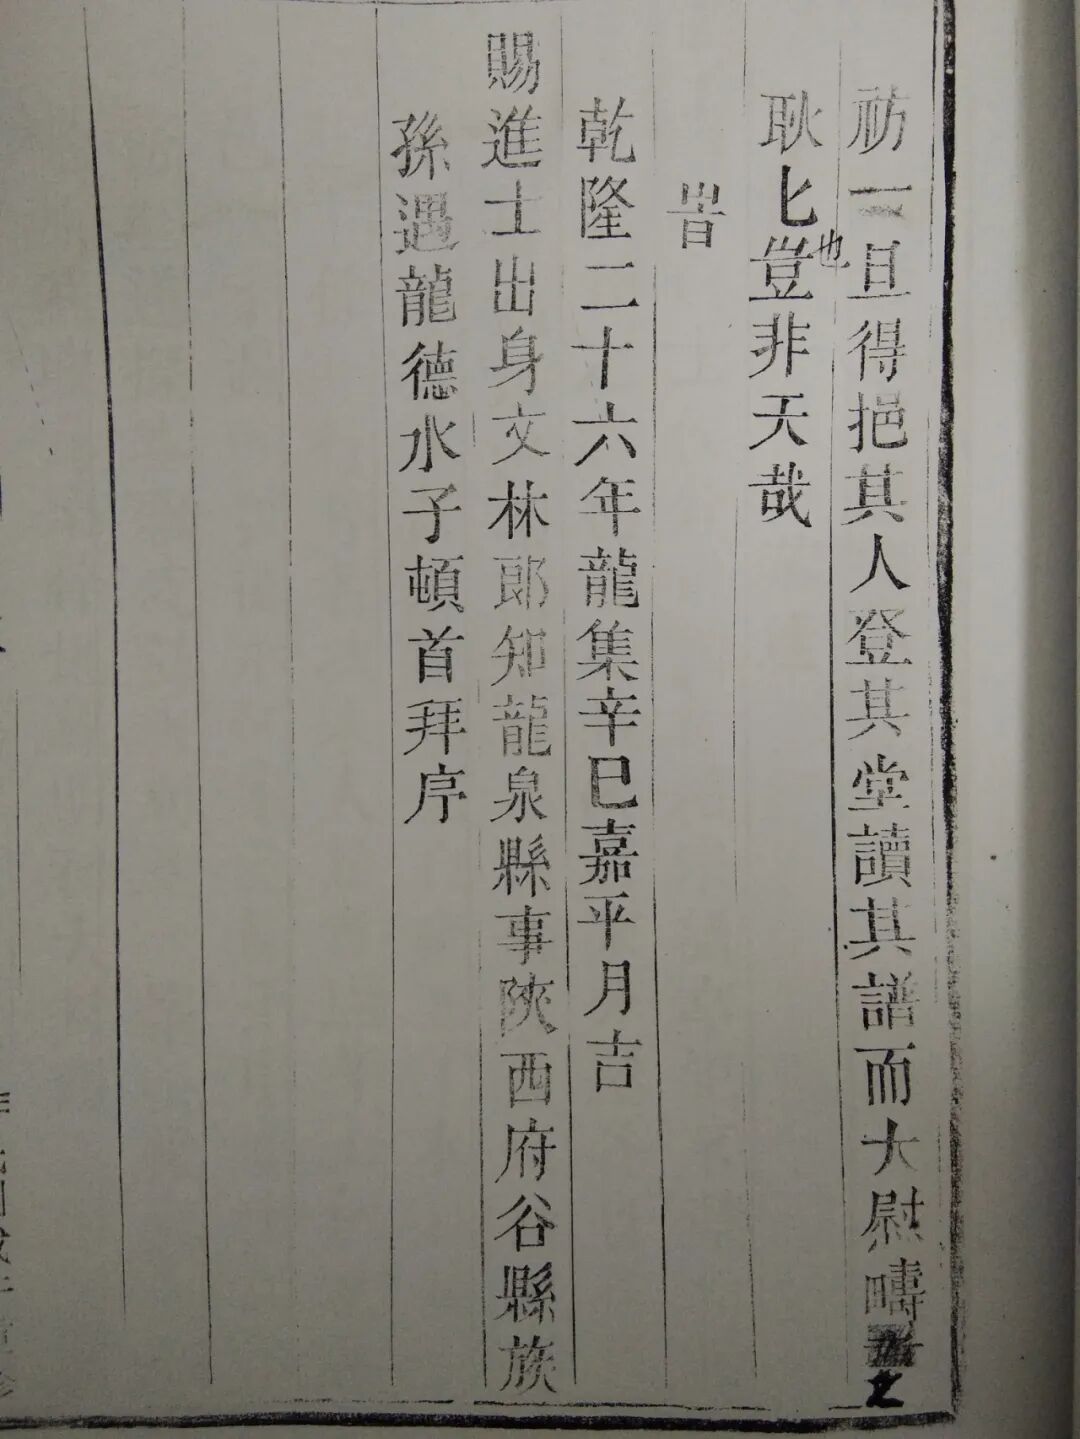 祊一旦得挹其人登其堂讀其譜而大慰疇之
耿匕也豈非天哉
旹
乾隆二十六年龍集辛巳嘉平月吉
賜進士出身文林郎知龍泉縣事陝西府谷縣族
孫遇龍德水子頓首拜序